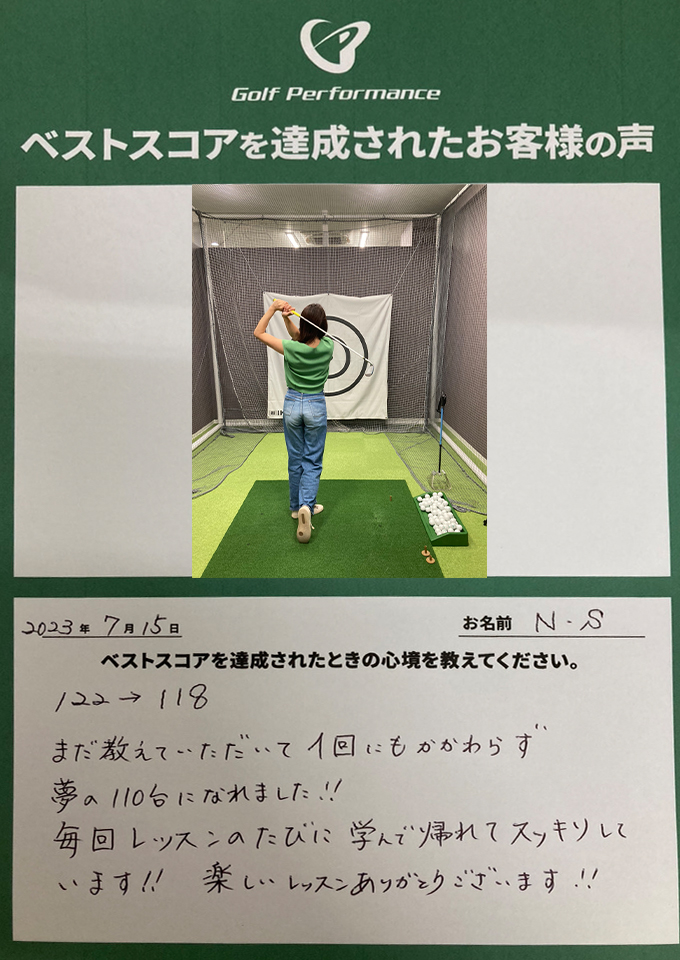 Golf Performance
ベストスコアを達成されたお客様の声
2023年 7月 15日
お名前 N.S
ベストスコアを達成されたときの心境を教えてください。
122→118
まだ教えていただいて1回にもかかわらず
夢の110台になれました!!
毎回レッスンのたびに学んで帰れてスッキリして
います!! 楽しいレッスンありがとうございます!!